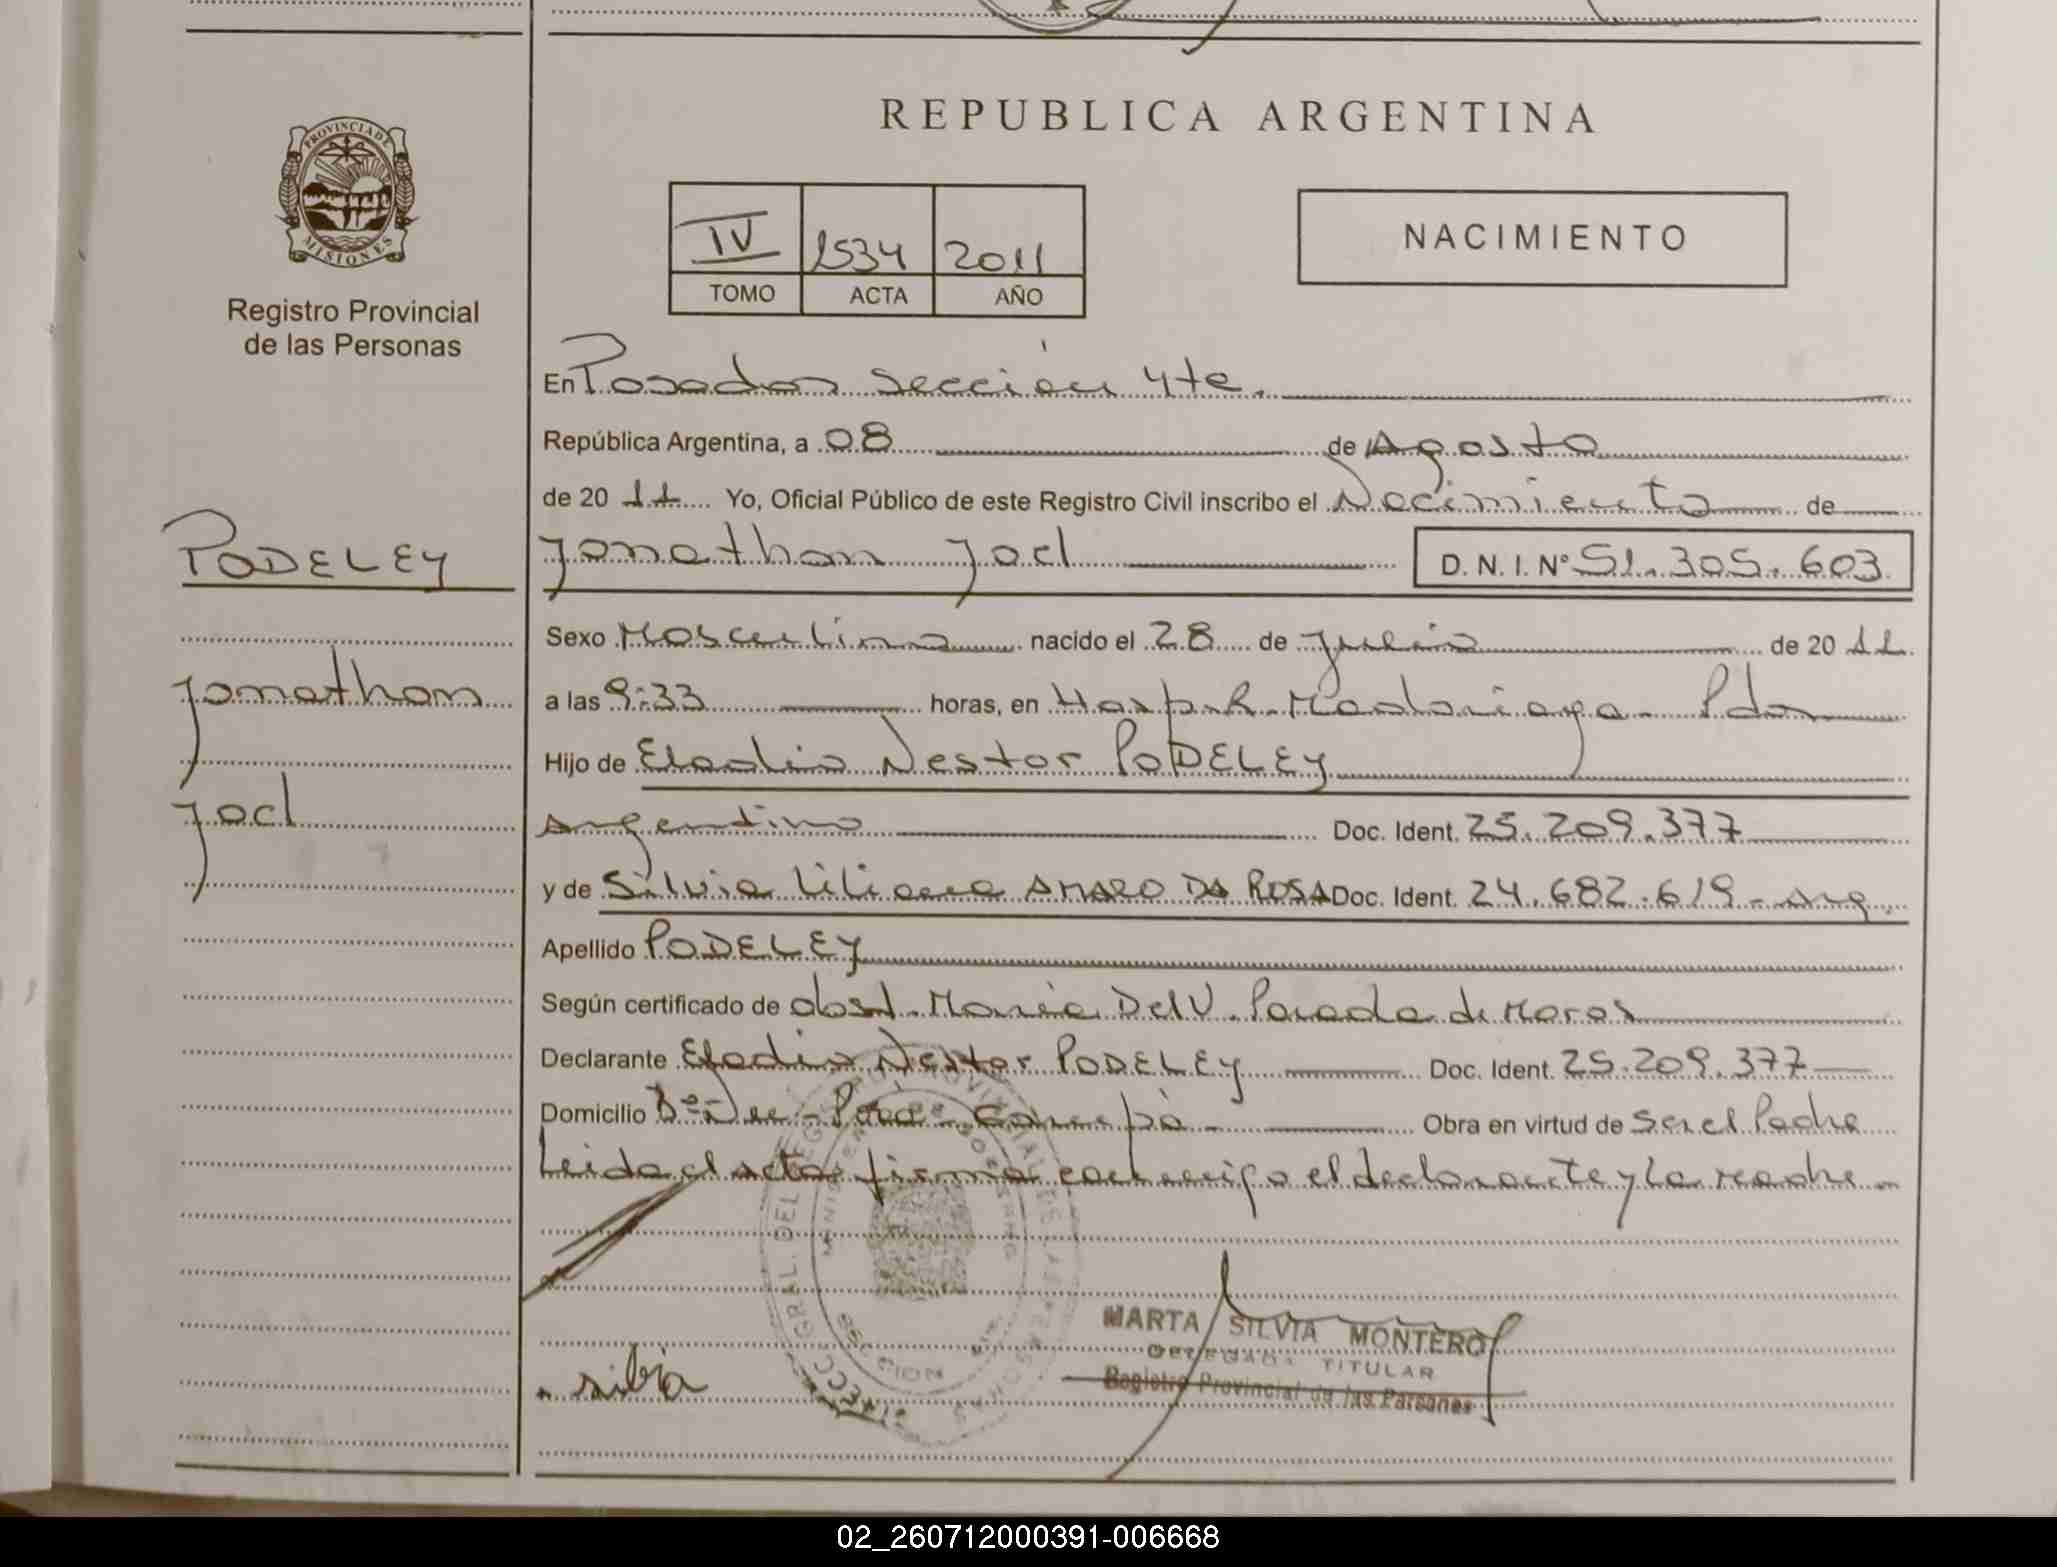 REPUBLICA ARGENTINA
PROVINCIA DE
MISIONES
Registro Provincial
de las Personas
IV 1534 2011
TOMO ACTA AÑO
NACIMIENTO
En Posadas sección 4te.
República Argentina, a 08 de Agosto
de 20 11 Yo, Oficial Público de este Registro Civil inscribo el Nacimiento de
PODELEY
Jonathan Joel D. N. I. Nº 51.305.603
Sexo Masculino nacido el 28 de Julio de 20 11
Jonathan
a las 9:33 horas, en Hosp. R. Madariaga - Pdas
Hijo de Eladio Nestor PODELEY
Joel
Argentino Doc. Ident. 25.209.377
y de Silvia Liliana AMARO DA ROSA Doc. Ident. 24.682.619 - Arg.
Apellido PODELEY
Según certificado de obst. María Del V. Parada de Moras
Declarante Eladio Nestor PODELEY Doc. Ident. 25.209.377
Domicilio Bº Ñu - Porá - Garupá - Obra en virtud de ser el Padre
Leida el acta firma conmigo el declarante y la madre -
MARTA SILVIA MONTERO
DELEGADA TITULAR
Registro Provincial de las Personas
silvia
02_260712000391-006668